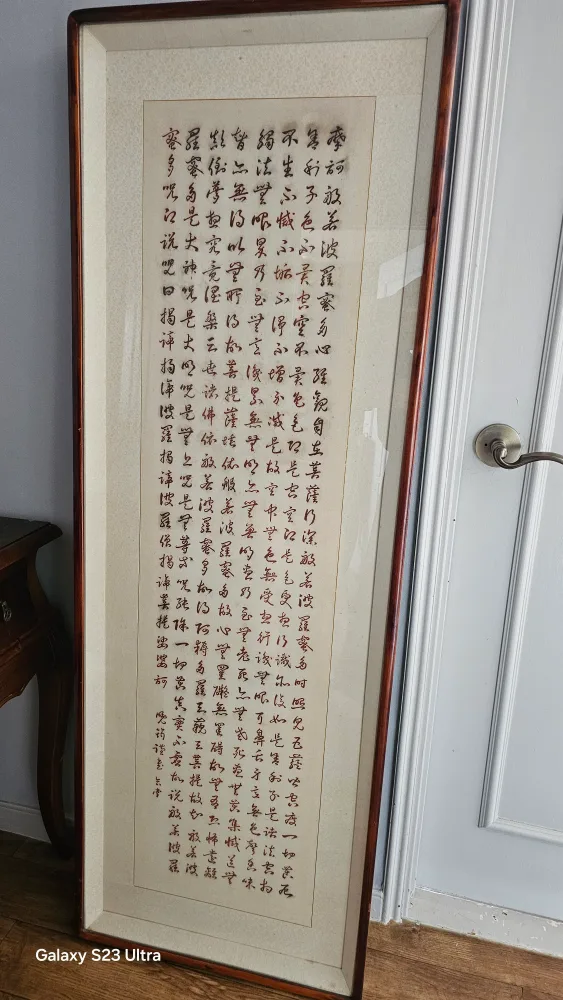 摩訶般若波羅蜜多心經觀自在菩薩行深般若波羅蜜多時照見五蘊皆空度一切苦厄
舍利子色不異空空不異色色即是空空即是色受想行識亦復如是舍利子是諸法空相
不生不滅不垢不淨不增不減是故空中無色無受想行識無眼耳鼻舌身意無色聲香味
觸法無眼界乃至無意識界無無明亦無無明盡乃至無老死亦無老死盡無苦集滅道無
智亦無得以無所得故菩提薩埵依般若波羅蜜多故心無罣礙無罣礙故無有恐怖遠離
顛倒夢想究竟涅槃三世諸佛依般若波羅蜜多故得阿耨多羅三藐三菩提故知般若波
羅蜜多是大神咒是大明咒是無上咒是無等等咒能除一切苦真實不虛故說般若波羅
蜜多咒即說咒曰揭諦揭諦波羅揭諦波羅僧揭諦菩提娑婆訶
Galaxy S23 Ultra